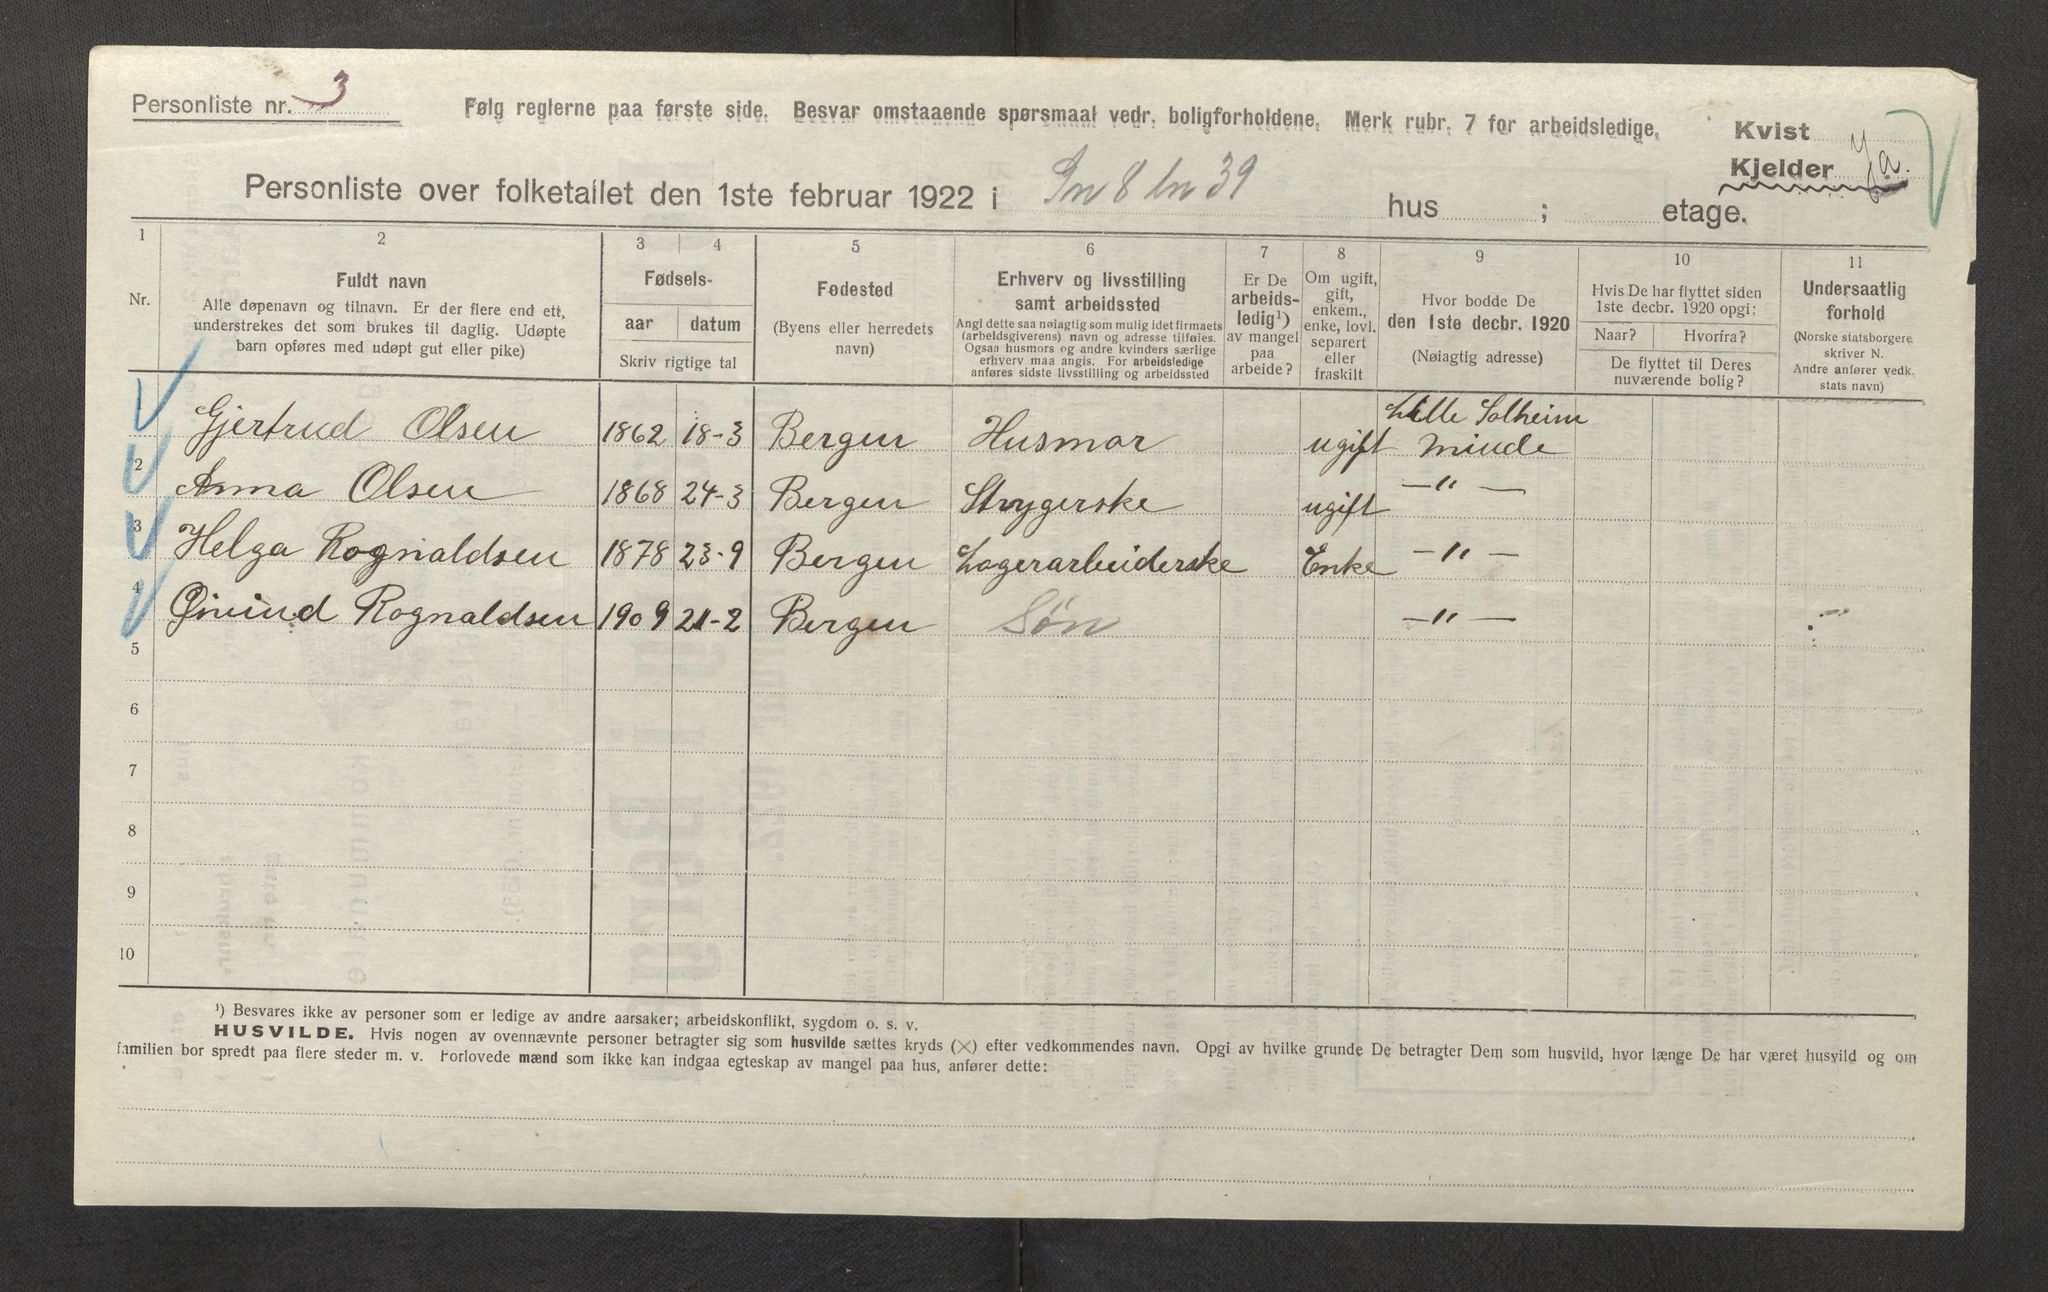 Personliste nr. 3
Følg reglerne paa første side. Besvar omstaaende spørsmaal vedr. boligforholdene. Merk rubr. 7 for arbeidsledige.
Kvist
Kjelder Ja.
Personliste over folketallet den 1ste februar 1922 i Gn 8 bn 39 hus ; etage.
1 2 3 4 5 6 7 8 9 10 11
Nr.
Fuldt navn
Alle døpenavn og tilnavn. Er der flere end ett,
understrekes det som brukes til daglig. Udøpte
barn opføres med udøpt gut eller pike)
Fødsels-
aar datum
Skriv rigtige tal
Fødested
(Byens eller herredets
navn)
Erhverv og livsstilling
samt arbeidssted
Angi dette saa nøiagtig som mulig idet firmaets
(arbeidsgiverens) navn og adresse tilføies.
Ogsaa husmors og andre kvinders særlige
erhverv maa angis. For arbeidsledige
anføres sidste livsstilling og arbeidssted
Er De
arbeids-
ledig¹)
av mangel
paa
arbeide?
Om ugift,
gift,
enkem.,
enke, lovl.
separert
eller
fraskilt
Hvor bodde De
den 1ste decbr. 1920
(Nøiagtig adresse)
Hvis De har flyttet siden
1ste decbr. 1920 opgi:
Naar? Hvorfra?
De flyttet til Deres
nuværende bolig?
Undersaatlig
forhold
(Norske statsborgere
skriver N.
Andre anfører vedk.
stats navn)
Lille Solheim
Gjertrud Olsen 1862 18-3 Bergen Husmor ugift Minde
2 Anna Olsen 1868 24-3 Bergen Strygerske ugift —"—
3 Helga Rognaldsen 1878 23-9 Bergen Lagerarbeiderske Enke —"—
4 Øivind Rognaldsen 1909 21-2 Bergen Søn —"—
5
6
7
8
9
10
¹) Besvares ikke av personer som er ledige av andre aarsaker; arbeidskonflikt, sygdom o. s. v.
HUSVILDE. Hvis nogen av ovennævnte personer betragter sig som husvilde sættes kryds (×) efter vedkommendes navn. Opgi av hvilke grunde De betragter Dem som husvild, hvor længe De har været husvild og om
familien bor spredt paa flere steder m. v. Forlovede mænd som ikke kan indgaa egteskap av mangel paa hus, anfører dette: